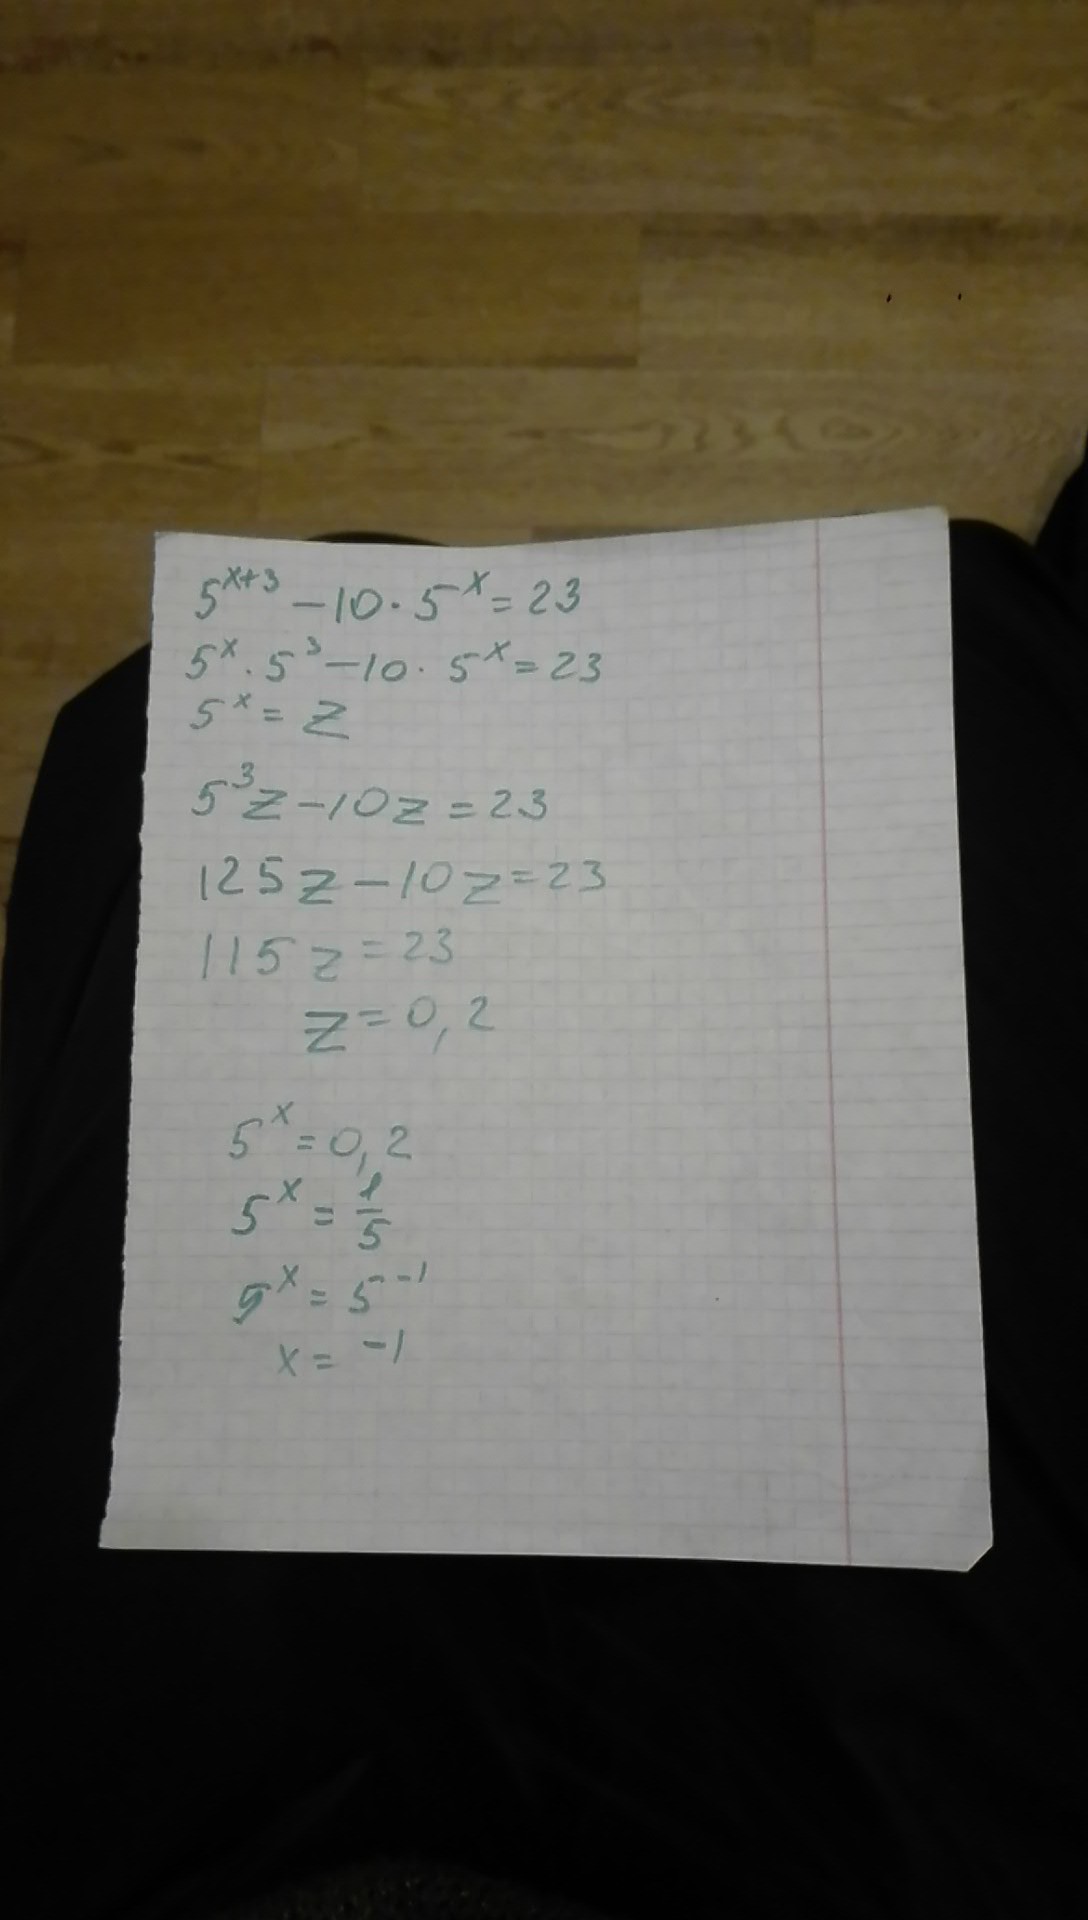 5^{x+3} - 10 · 5^x = 23
5^x · 5^3 - 10 · 5^x = 23
5^x = z
5^3 z - 10z = 23
125z - 10z = 23
115z = 23
z = 0,2
5^x = 0,2
5^x = 1/5
5^x = 5^{-1}
x = -1